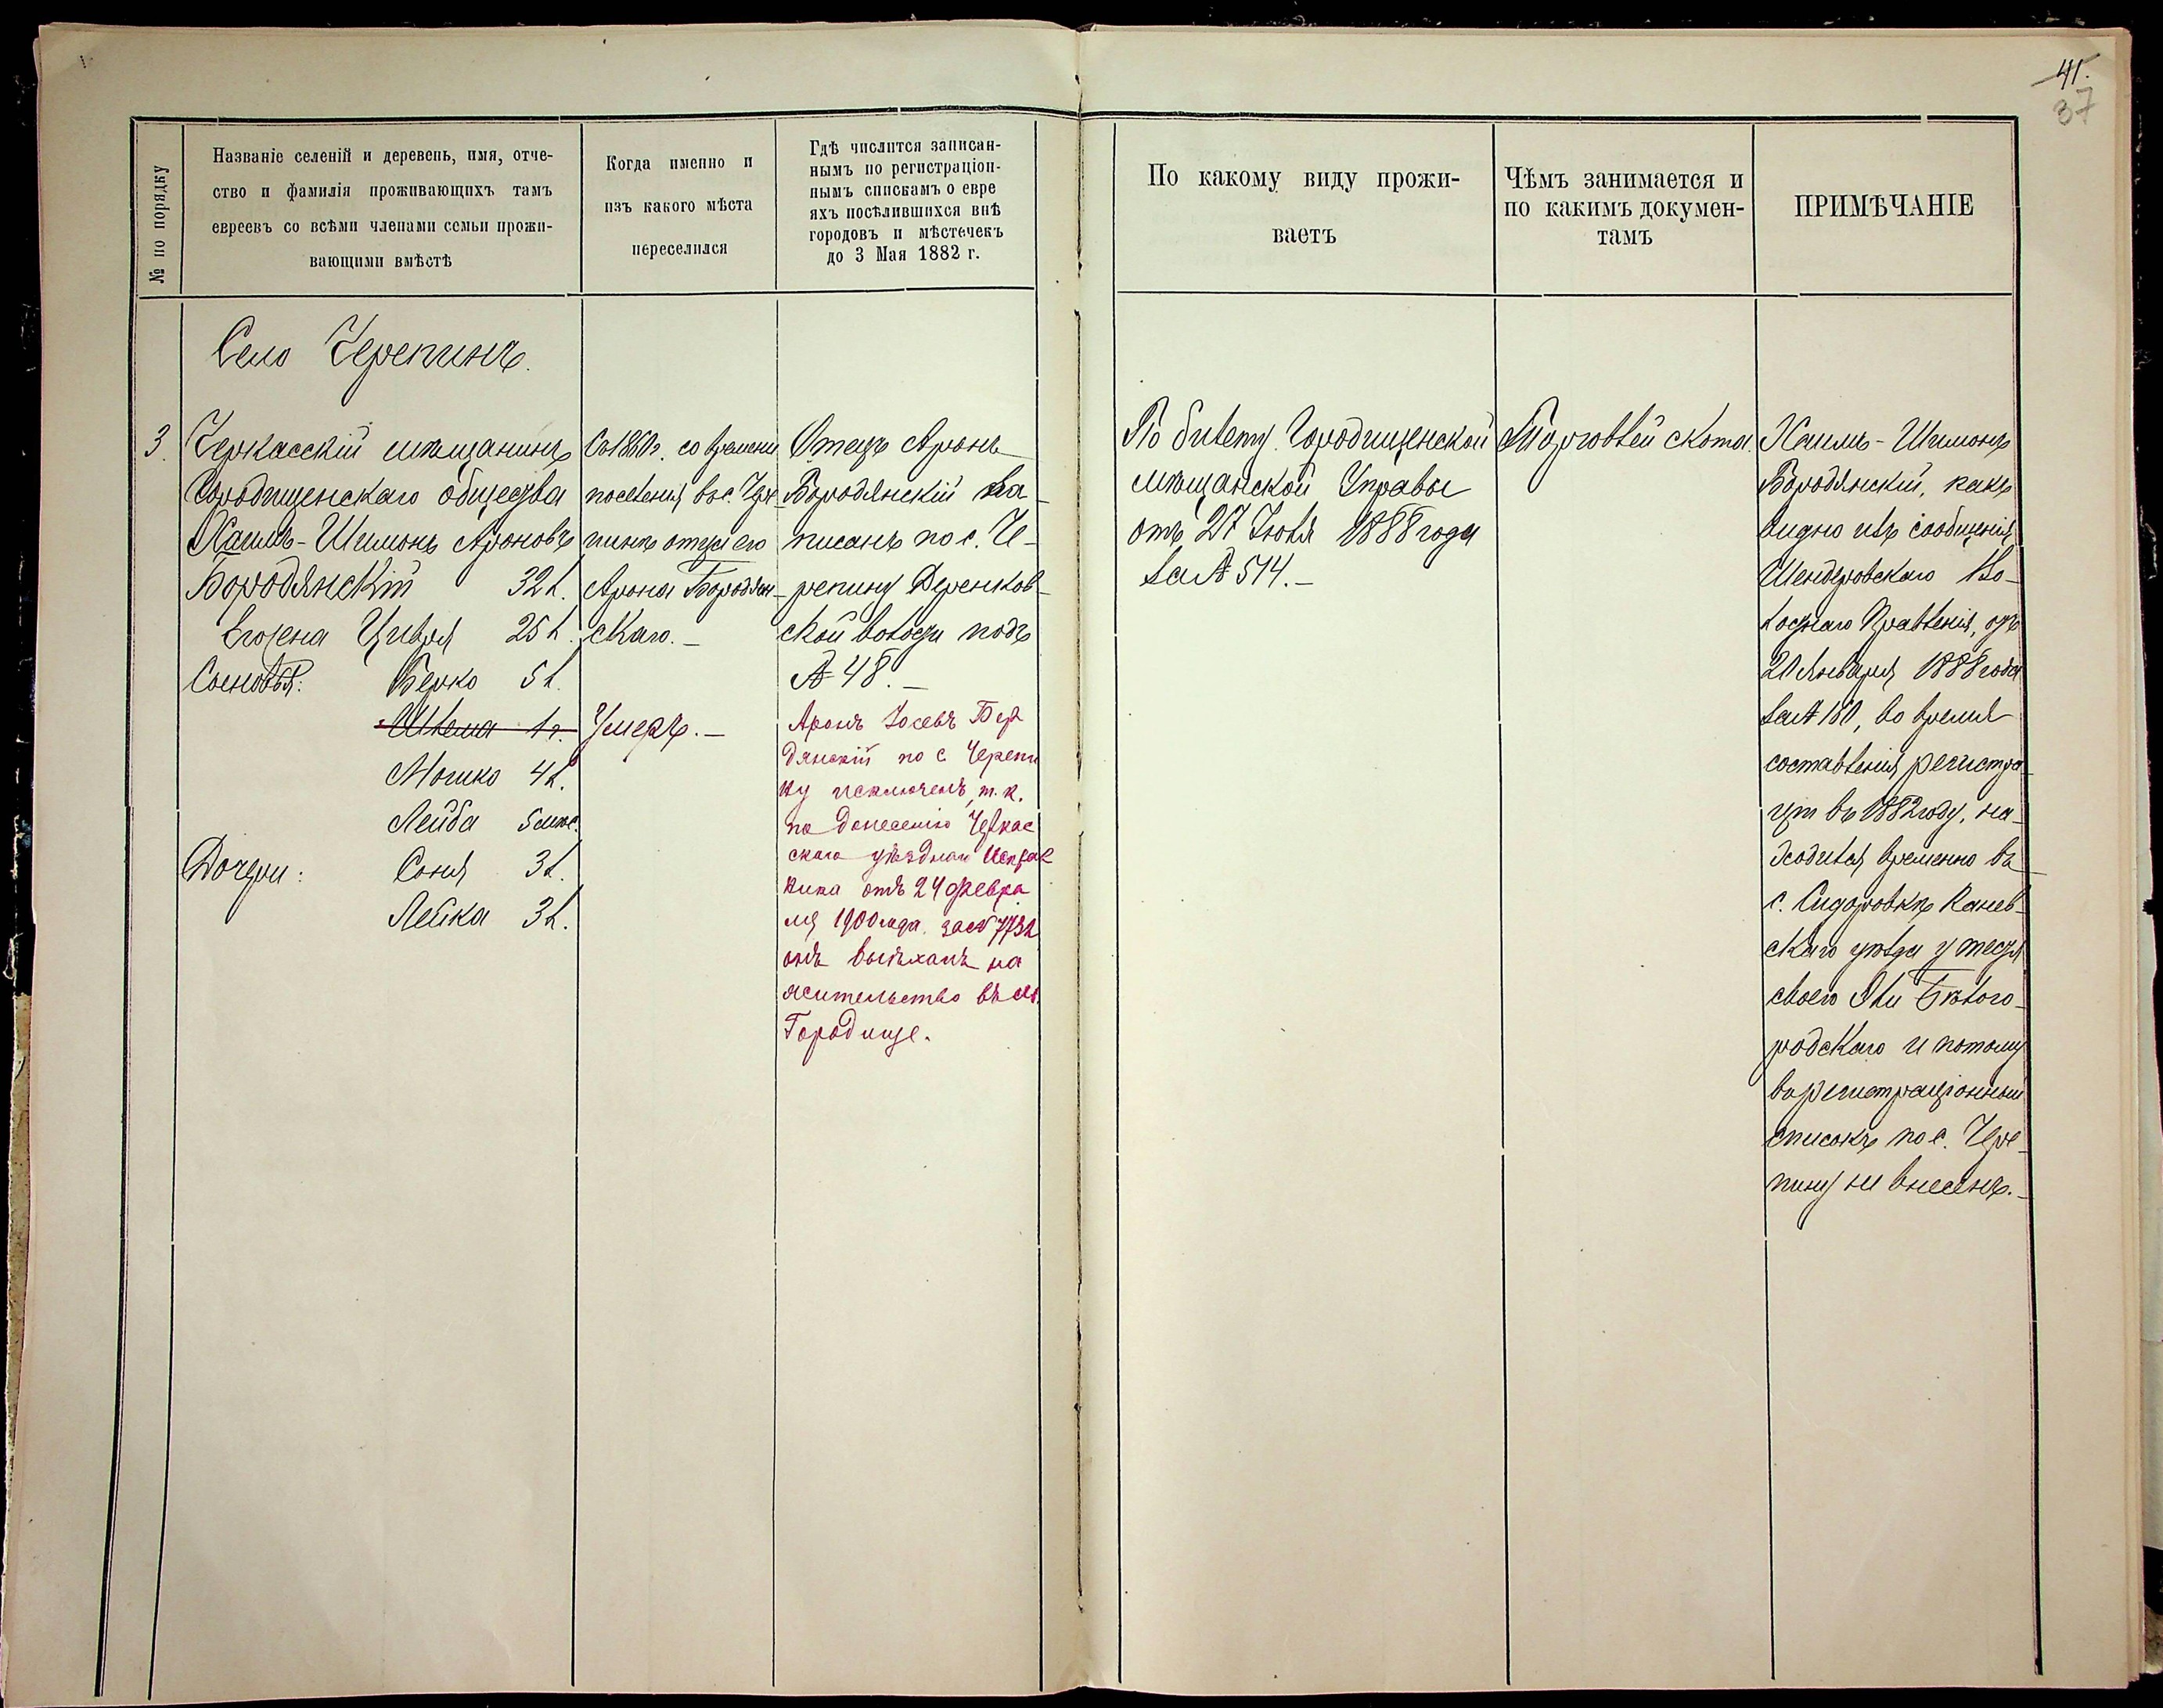 41.
37
№ по порядку
Названіе селеній и деревень, имя, отче-
ство и фамилія проживающихъ тамъ
евреевъ со всѣми членами семьи прожи-
вающими вмѣстѣ
Когда именно и
изъ какого мѣста
переселился
Гдѣ числится записан-
нымъ по регистраціон-
нымъ спискамъ о евре
яхъ посѣлившихся внѣ
городовъ и мѣстечекъ
до 3 Мая 1882 г.
По какому виду прожи-
ваетъ
Чѣмъ занимается и
по какимъ докумен-
тамъ
ПРИМѢЧАНІЕ
Село Черепинъ.
3.
Черкасскій мѣщанинъ
Городищенскаго общества
Хаимъ-Шимонъ Ароновъ
Бородянскій 32 л.
Его жена Цивья 25 л.
Сыновья: Берко 5 л.
Шлема 1 г.
Мошко 4 л.
Лейба 5 мѣс.
Дочери: Соня 3 л.
Лейка 3 л.
Съ 1860 г. со времени
поселенія въ с. Чере-
пинѣ отца его
Арона Бородян-
скаго.-
Умеръ.-
Отецъ Аронъ
Бородянскій за-
писанъ по с. Че-
репину Деренков-
ской волости подъ
№ 48.-
Аронъ Іосевъ Бор
дянскій по с. Черепи
ну исключенъ, т. к.
по донесенію Черкас
скаго уѣзднаго Исправ
ника отъ 24 февра
ля 1900 года за № 7732
онъ выѣхалъ на
жительство въ м.
Городище.
По билету Городищенской
мѣщанской Управы
отъ 27 Іюля 1888 года
за № 514.-
Торговлей скота.
Хаимъ-Шимонъ
Бородянскій, какъ
видно изъ сообщенія
Шендеровскаго Во-
лостнаго Правленія, отъ
20 Января 1888 года
за № 160, во время
составленія регистра-
ціи въ 1882 году, на-
ходился временно въ
с. Сидоровкѣ Канев-
скаго уѣзда у тестя
своего Эли Бѣлого-
родскаго и потому
въ регистраціонный
списокъ по с. Чере-
пину не внесенъ.-